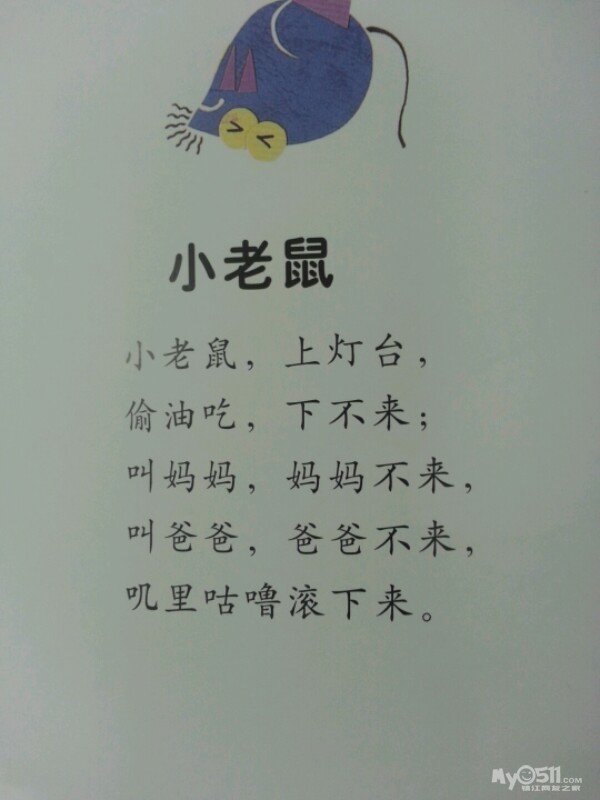 小老鼠
小老鼠，上灯台，
偷油吃，下不来；
叫妈妈，妈妈不来，
叫爸爸，爸爸不来，
叽里咕噜滚下来。
My0511.COM
镇江网友之家